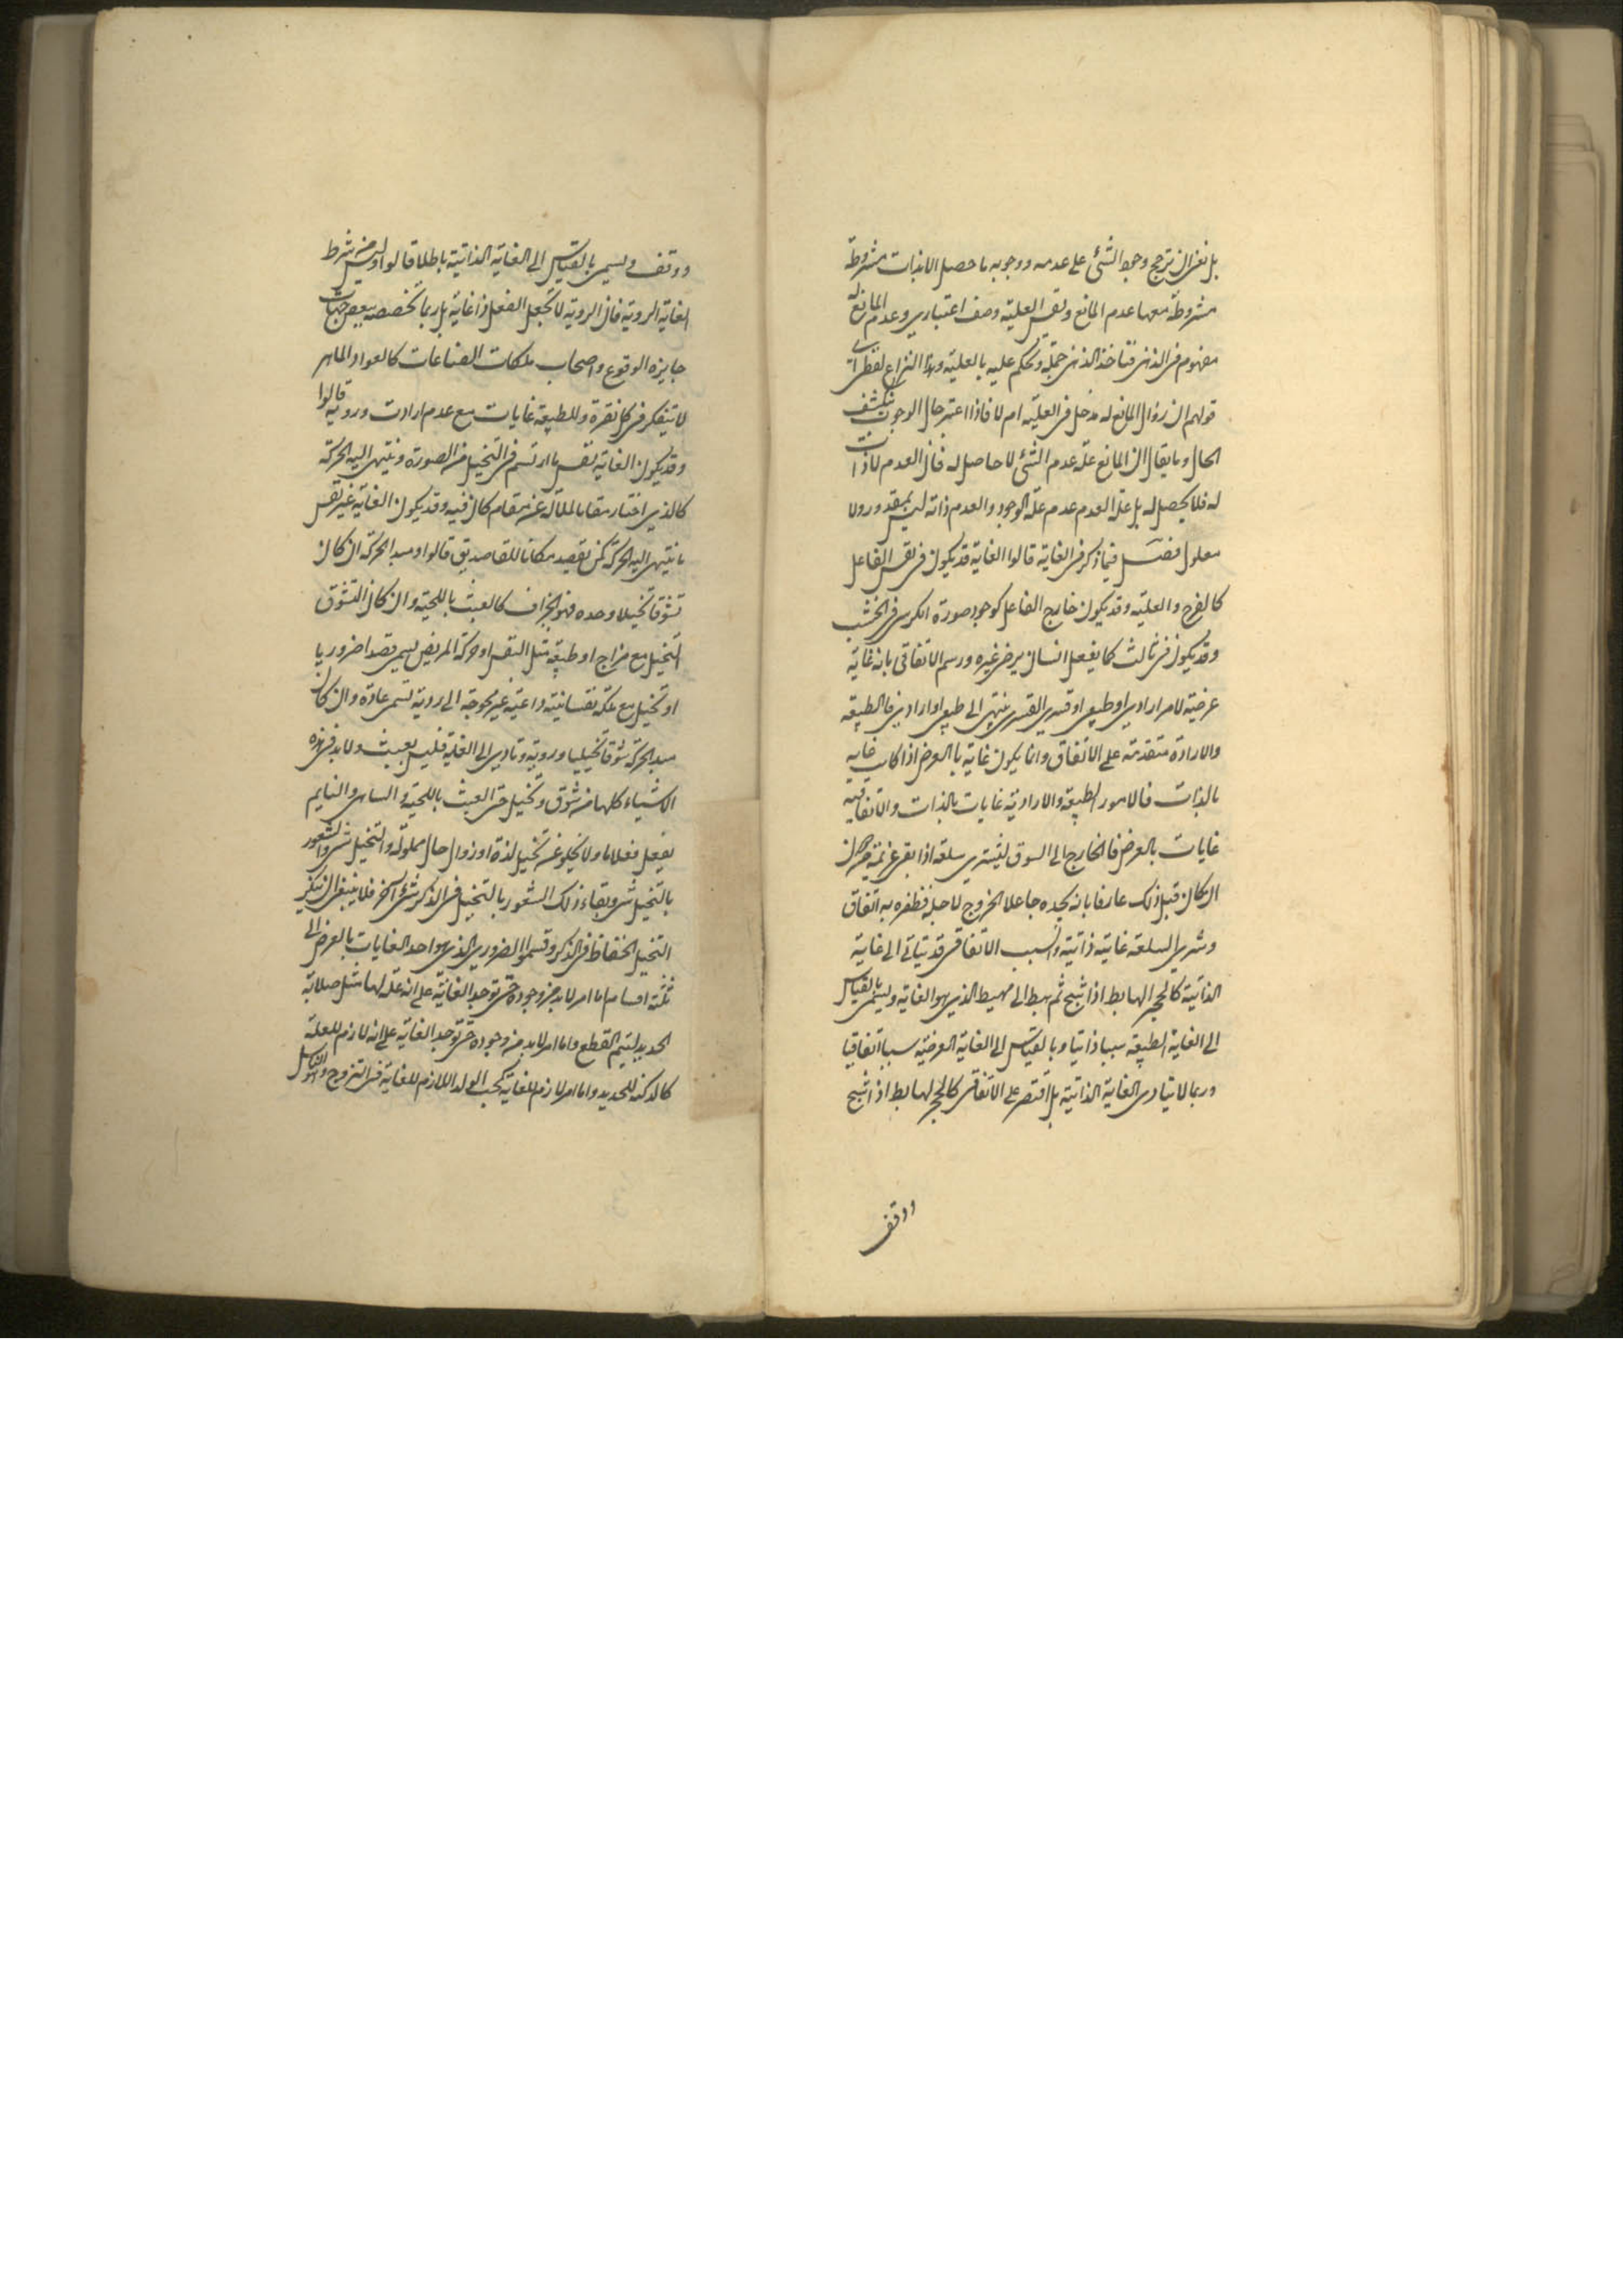 بل نعنى ان ترجح وجود الشئ على عدمه ووجوبه ما حصل الا بذات مشروطة
مشروطة معها عدم المانع ونفس العلية وصف اعتبارى وعدم المانع له
مفهوم فى الذهن فتاخذ الذهن جملة وتحكم عليه بالعلية وهذا النزاع لفظى
قولهم ان زوال المانع له مدخل فى العلية ام لا فاذا اعتبر حال الوجوب ينكشف
الحال وما يقال ان المانع علة عدم الشئ لا حاصل له فان العدم لا ذات
له فلا يحصل له بل علة العدم عدم علة الوجود والعدم ذاته ليس بمقدور ولا
معلول فصل فيما ذكر فى الغاية قالوا الغاية قد يكون فى نفس الفاعل
كالفرح والعلية وقد يكون خارج الفاعل كوجود صورة الكرسى فى الخشب
وقد يكون فى ثالث كما يفعل انسان يرضى غيره ورسم الاتفاقى بانه غاية
عرضية لامر ارادى او طبيعى او قسرى القسرى ينتهى الى طبيعى او ارادى فالطبيعة
والارادة متقدمة على الاتفاق وانما يكون غاية بالعرض اذا كانت غاية
بالذات فالامور الطبيعة والارادية غايات بالذات والاتفاقية
غايات بالعرض فالخارج الى السوق ليشترى سلعة اذا بقى غريمه
ان كان قبل ذلك عارفا بانه يجده جاعلا الخروج لاجله فظفره به اتفاق
وشرى السلعة غاية ذاتية والسبب الاتفاقى قد يتاتى الى غاية
الذاتية كالحجر الهابط اذا شج ثم هبط الى مهبط الذى هو الغاية ويسمى بالقياس
الى الغاية الطبيعة سببا ذاتيا وبالقياس الى الغاية العرضية سببا اتفاقيا
وربما لا يتادى الغاية الذاتية بل اقتصر على الاتفاقى كالحجر الهابط اذا شج
ووقف
ووقف ويسمى بالقياس الى الغاية الذاتية باطلا قالوا وليس من شرط
الغاية الروية فان الروية لا تجعل الفعل ذا غاية بل ربما تخصصه ببعض جهات
جايزه الوقوع واصحاب ملكات الصناعات كالعواد الماهر
لا يتفكر فى كل نقرة وللطبيعة غايات مع عدم ارادت وروية قالوا
وقد يكون الغاية نفس ما ارتسم فى التخيل من الصورة وينتهى اليه الحركة
كالذى اختار مقاما لملاله عن مقام كان فيه وقد يكون الغاية غير نفس
ما ينتهى اليه الحركة كمن يقصد مكانا للقا صديق قالوا ومبدا الحركة ان كان
تشوقا تخيلا وحده فهو الجزاف كالعبث باللحية وان كان التشوق
التخيل مع مزاج او طبيعة مثل التنفس او حركة المريض يسمى قصدا ضروريا
او تخيل مع ملكة نفسانية داعية غير محوجة الى روية تسمى عادة وان كان
مبدا الحركة شوقا تخيليا وروية وتادى الى الغاية فليس بعبث ولا بد فى هذه
الاشياء كلها من شوق وتخيل حتى العبث باللحية والساهى والنايم
يفعل فعلا ما ولا يخلو عن تخيل لذة او زوال حال مملولة والتخيل شئ والشعور
بالتخيل شئ وبقاء ذلك الشعور بالتخيل فى الذكر شئ آخر فلا ينبغى ان ينكر
التخيل لانحفاظ فى الذكر وقسموا الضرورى الذى هو احد الغايات بالعرض الى
ثلثة اقسام اما امر لا بد من وجوده حتى توجد الغاية على انه علة لها مثل صلابة
الحديد ليتم القطع واما امر لا بد من وجوده حتى توجد الغاية على انه لازم للعلة
كالدكنه للحديد واما امر لازم للغاية كحب الولد اللازم للغاية فى التزوج والتناسل